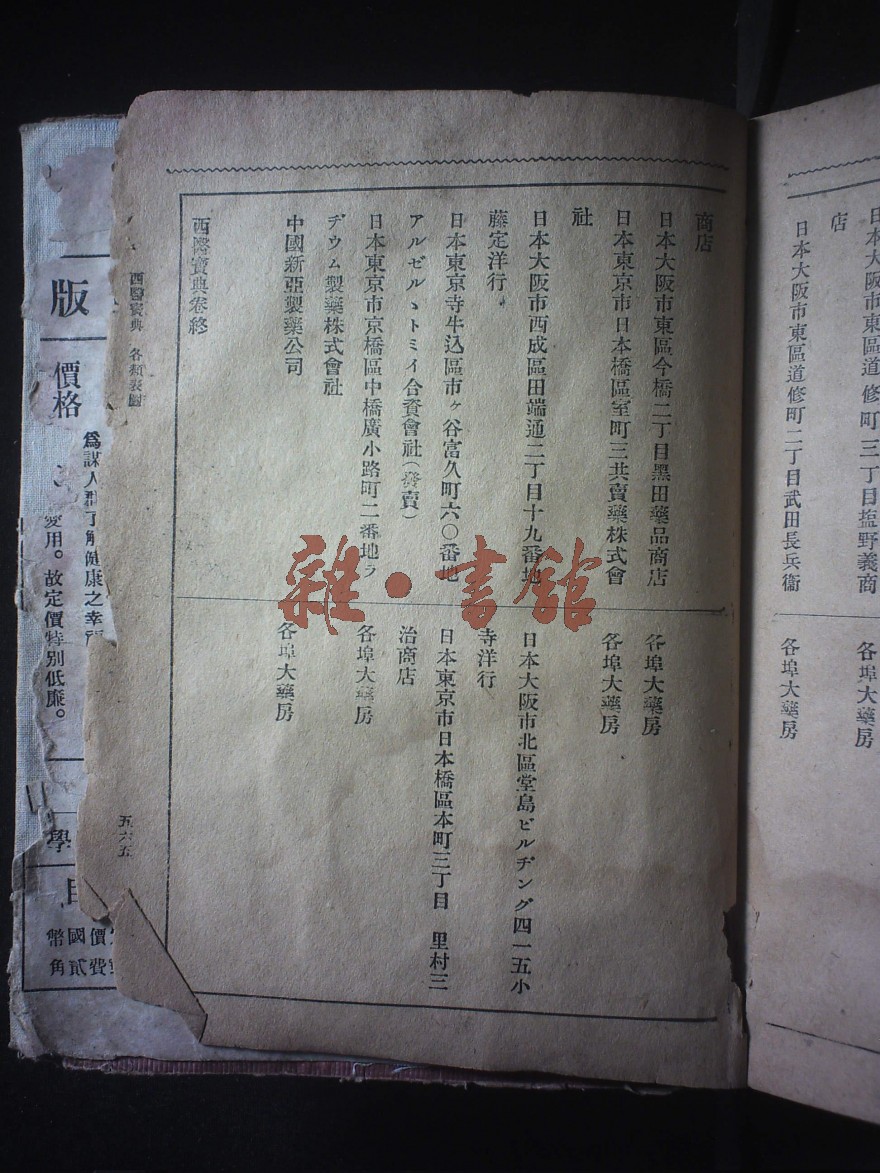 日本大阪市東區道修町三丁目塩野義商
店
日本大阪市東區道修町二丁目武田長兵衞
各埠大藥房
各埠大藥房
商店
日本大阪市東區今橋二丁目黑田藥品商店
日本東京市日本橋區室町三共賣藥株式會
社
日本大阪市西成區田端通二丁目十九番地
藤定洋行
日本東京寺牛込區市ヶ谷富久町六〇番地
アルゼルヽトミイ合資會社(發賣)
日本東京市京橋區中橋廣小路町二番地ラ
ヂウム製藥株式會社
中國新亞製藥公司
西醫寶典卷終
各埠大藥房
各埠大藥房
日本大阪市北區堂島ビルヂング四一五小
寺洋行
日本東京市日本橋區本町三丁目 里村三
治商店
各埠大藥房
各埠大藥房
西醫寶典 各類表圖
五六五
雜·書館
版
價格
爲謀人群了解健康之幸
愛用。故定價特別低廉。
學
國幣
貳角